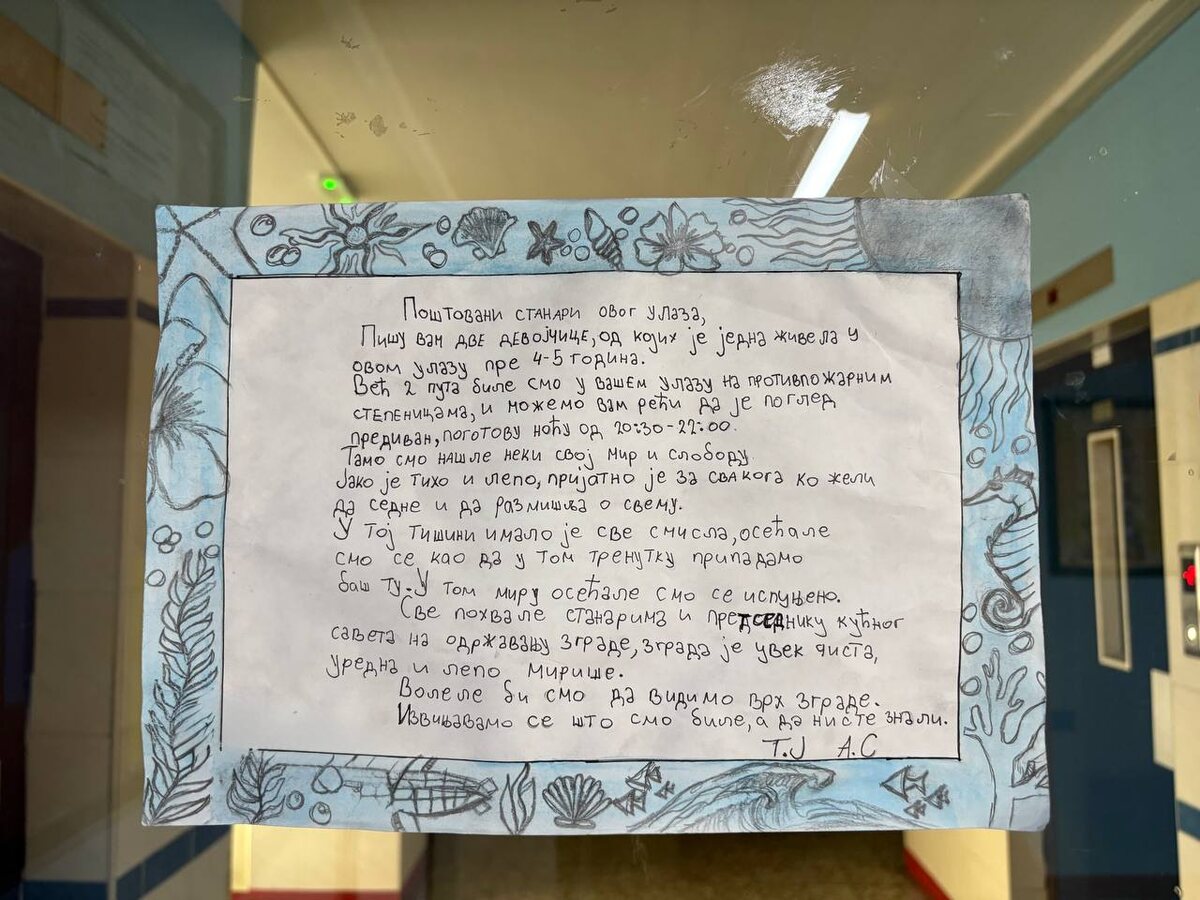 Поштовани станари овог улаза,
Пишу вам две девојчице, од којих је једна живела у
овом улазу пре 4-5 година.
Већ 2 пута биле смо у вашем улазу на противпожарним
степеницама, и можемо вам рећи да је поглед
предиван, поготову ноћу од 20:30-22:00.
Тамо смо нашле неки свој мир и слободу.
Јако је тихо и лепо, пријатно је за свакога ко жели
да седне и да размишља о свему.
У тој тишини имало је све смисла, осећале
смо се као да у том тренутку припадамо
баш ту. У том миру осећале смо се испуњено.
Све похвале станарима и претседнику кућног
савета на одржавању зграде, зграда је увек чиста,
уредна и лепо мирише.
Волеле би смо да видимо врх зграде.
Извињавамо се што смо биле, а да нисте знали.
Т.Ј А.С